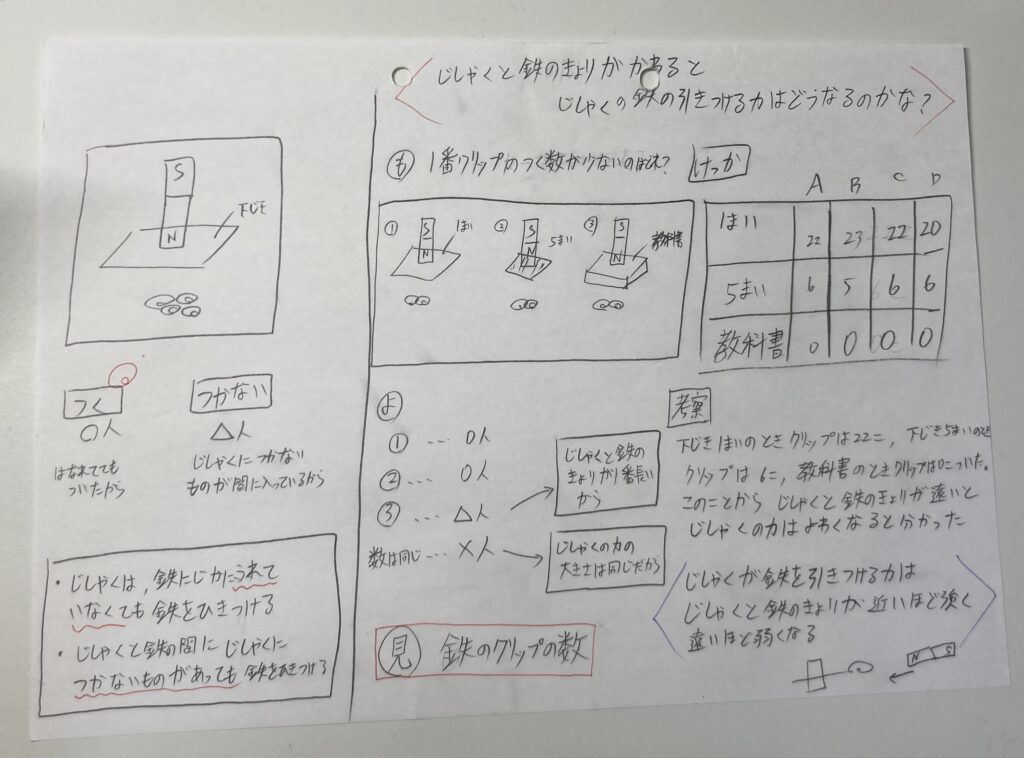 S
N
下じき
つく
つかない
〇人
△人
はなれてても
ついたから
じしゃくにつかない
ものが間に入っているから
・じしゃくは,鉄にじかにふれて
いなくても鉄をひきつける
・じしゃくと鉄の間にじしゃくに
つかないものがあっても鉄をひきつける
じしゃくと鉄のきょりがかわると
じしゃくの鉄の引きつける力はどうなるのかな?
も 1番クリップのつく数が少ないのはどれ?
① S N 1まい
② S N 5まい
③ S N 教科書
よ
① … 〇人
② … 〇人
③ … △人
数は同じ … ×人
じしゃくと鉄の
きょりが1番長い
から
じしゃくの力の
大きさは同じだから
見 鉄のクリップの数
けっか
A B C D
1まい 22 23 22 20
5まい 6 5 6 6
教科書 0 0 0 0
考察
下じき1まいのときクリップは22こ,下じき5まいのとき
クリップは6こ,教科書のときクリップは0こついた。
このことからじしゃくと鉄のきょりが遠いと
じしゃくの力はよわくなると分かった
じしゃくが鉄を引きつける力は
じしゃくと鉄のきょりが近いほど強く
遠いほど弱くなる
N S